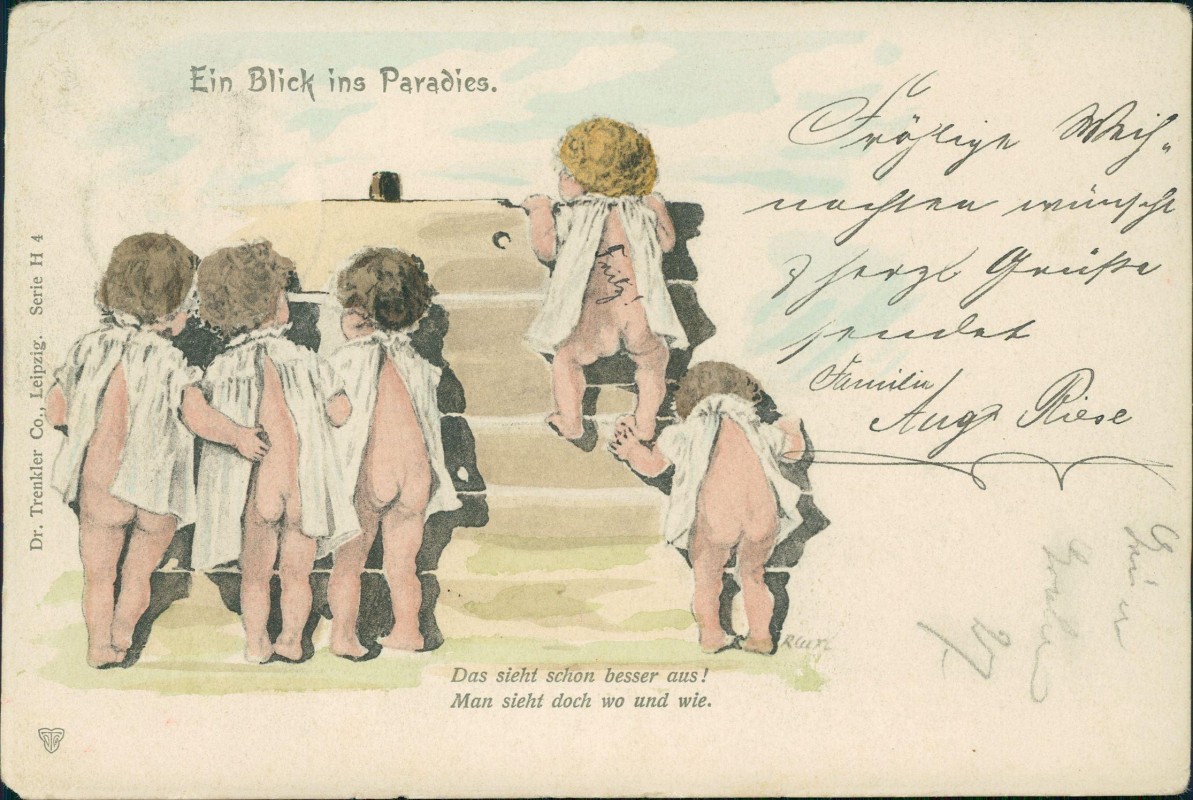 Ein Blick ins Paradies.
Fröhlige Weih„
nachten wünscht
& herzl Grüße
sendet
Familie
Aug. Riese
Fritz!
Dr. Trenkler Co., Leipzig. Serie H 4
Das sieht schon besser aus!
Man sieht doch wo und wie.